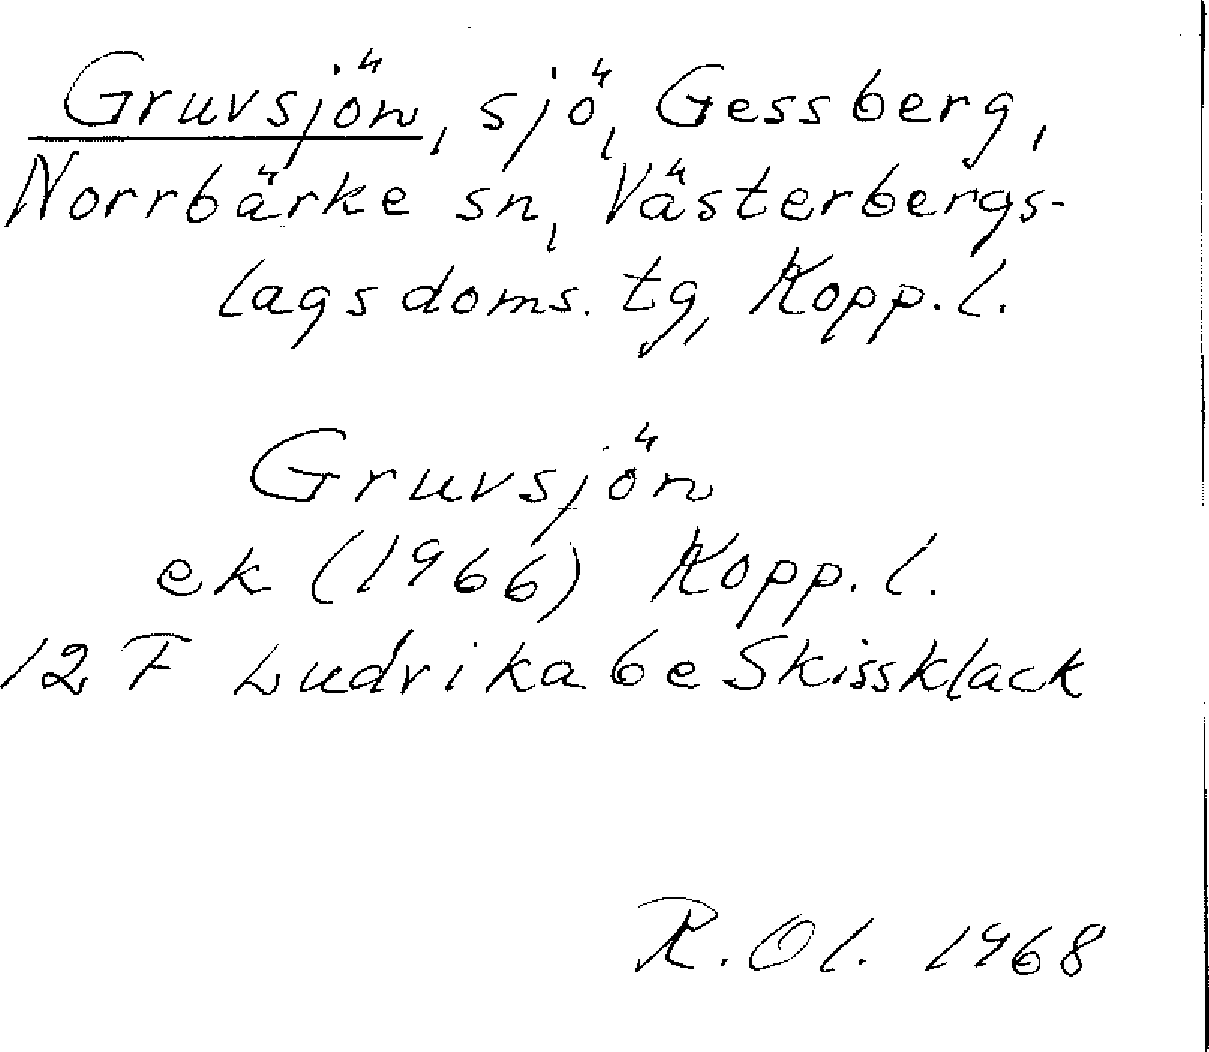 Gruvsjön, sjö, Gessberg,
Norrbärke sn, Västerbergs-
lags doms. tg, Kopp. l.
Gruvsjön
ek (1966) Kopp. l.
12 F Ludvika be Skissklack
R. Ol. 1968